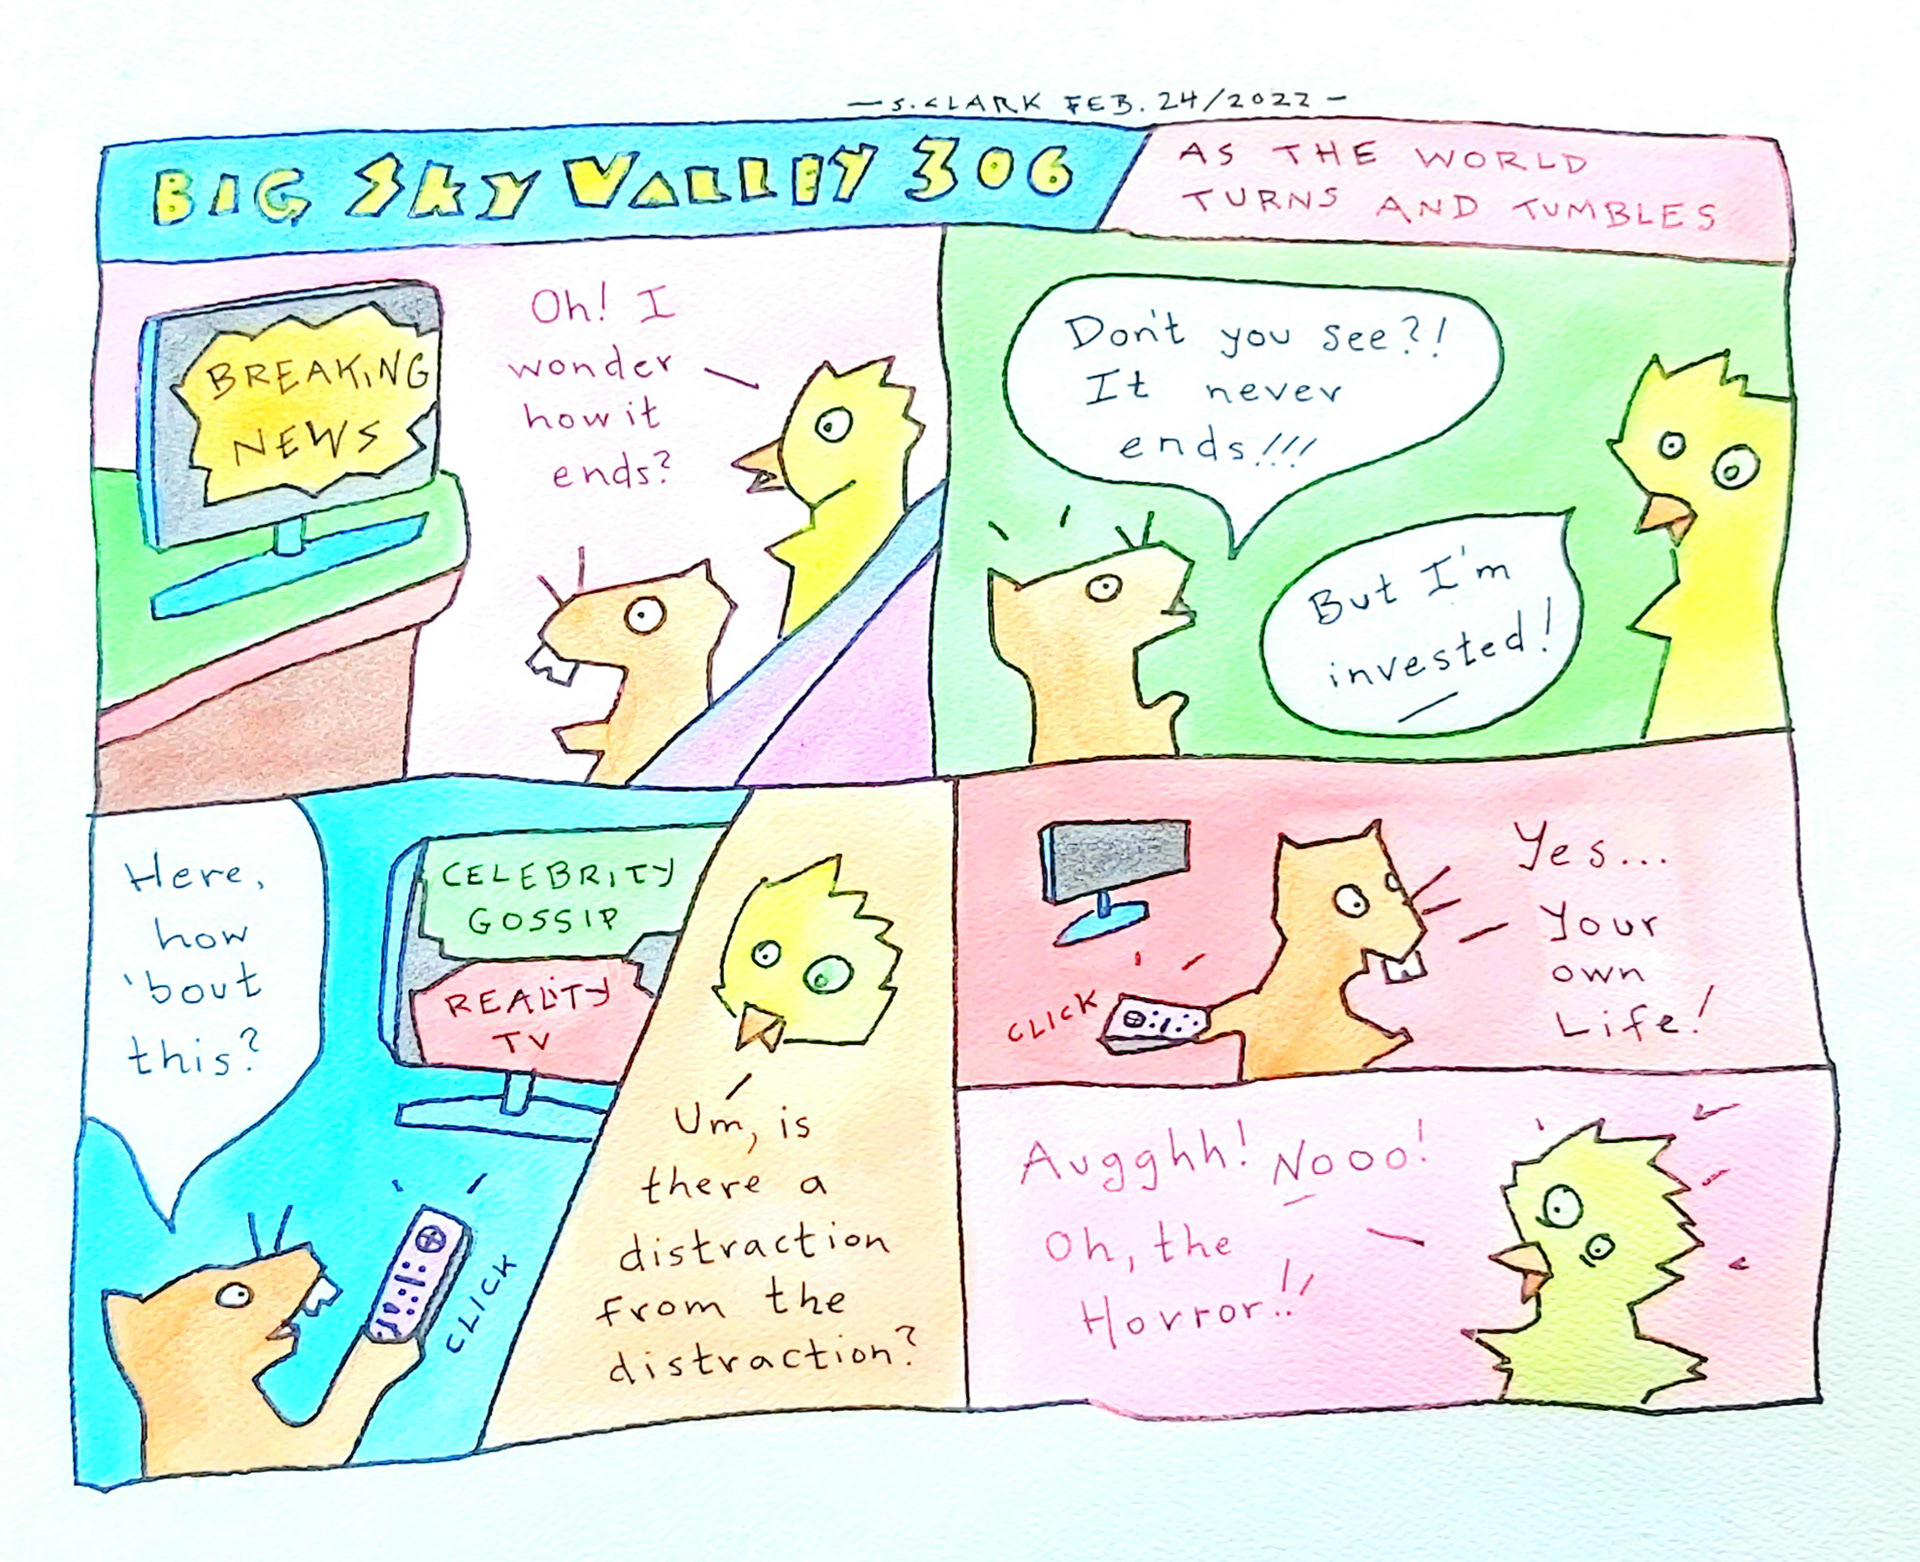 — S. CLARK FEB. 24/2022 —
BIG SKY VALLEY 306
AS THE WORLD
TURNS AND TUMBLES
BREAKING
NEWS
Oh! I
wonder
how it
ends?
Don't you see?!
It never
ends!!!
But I'm
invested!
Here,
how
'bout
this?
CELEBRITY
GOSSIP
REALITY
TV
CLICK
Um, is
there a
distraction
from the
distraction?
CLICK
Yes...
Your
own
Life!
Augghh! Nooo!
Oh, the
Horror..!!